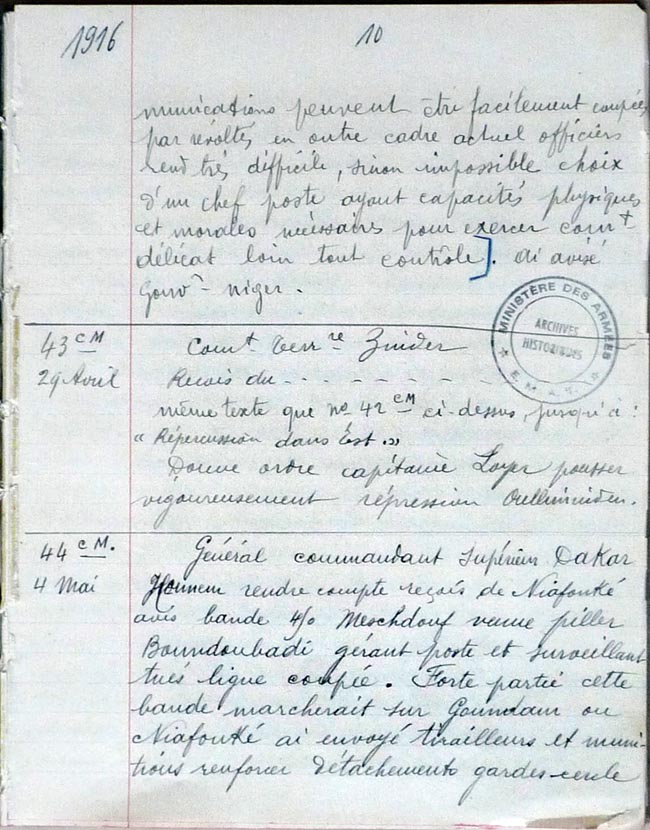 1916
10
munications peuvent être facilement coupées
par révoltés en outre cadre actuel officiers
rend très difficile, sinon impossible choix
d'un chef poste ayant capacités physiques
et morales nécessaires pour exercer comt
délicat loin tout contrôle]. ai avisé
Gouvr Niger.
43 CM
29 Avril
Comt Terrre Zinder
Reçois du - - - - - - -
même texte que no 42 CM ci-dessus, jusqu'à :
"Répercussion dans Est."
Donne ordre capitaine Loyer pousser
vigoureusement répression Oulliminden.
MINISTÈRE DES ARMÉES
ARCHIVES
HISTORIQUES
E. M. A. T.
44 CM.
4 Mai
Général commandant supérieur Dakar
Honneur rendre compte reçois de Niafounké
avis bande Meschdouf venue piller
Boundoubadi gérant poste et surveillant
tués ligne coupée. Forte partie cette
bande marcherait sur Goundam ou
Niafounké ai envoyé tirailleurs et muni-
tions renforcer détachements gardes-cercle